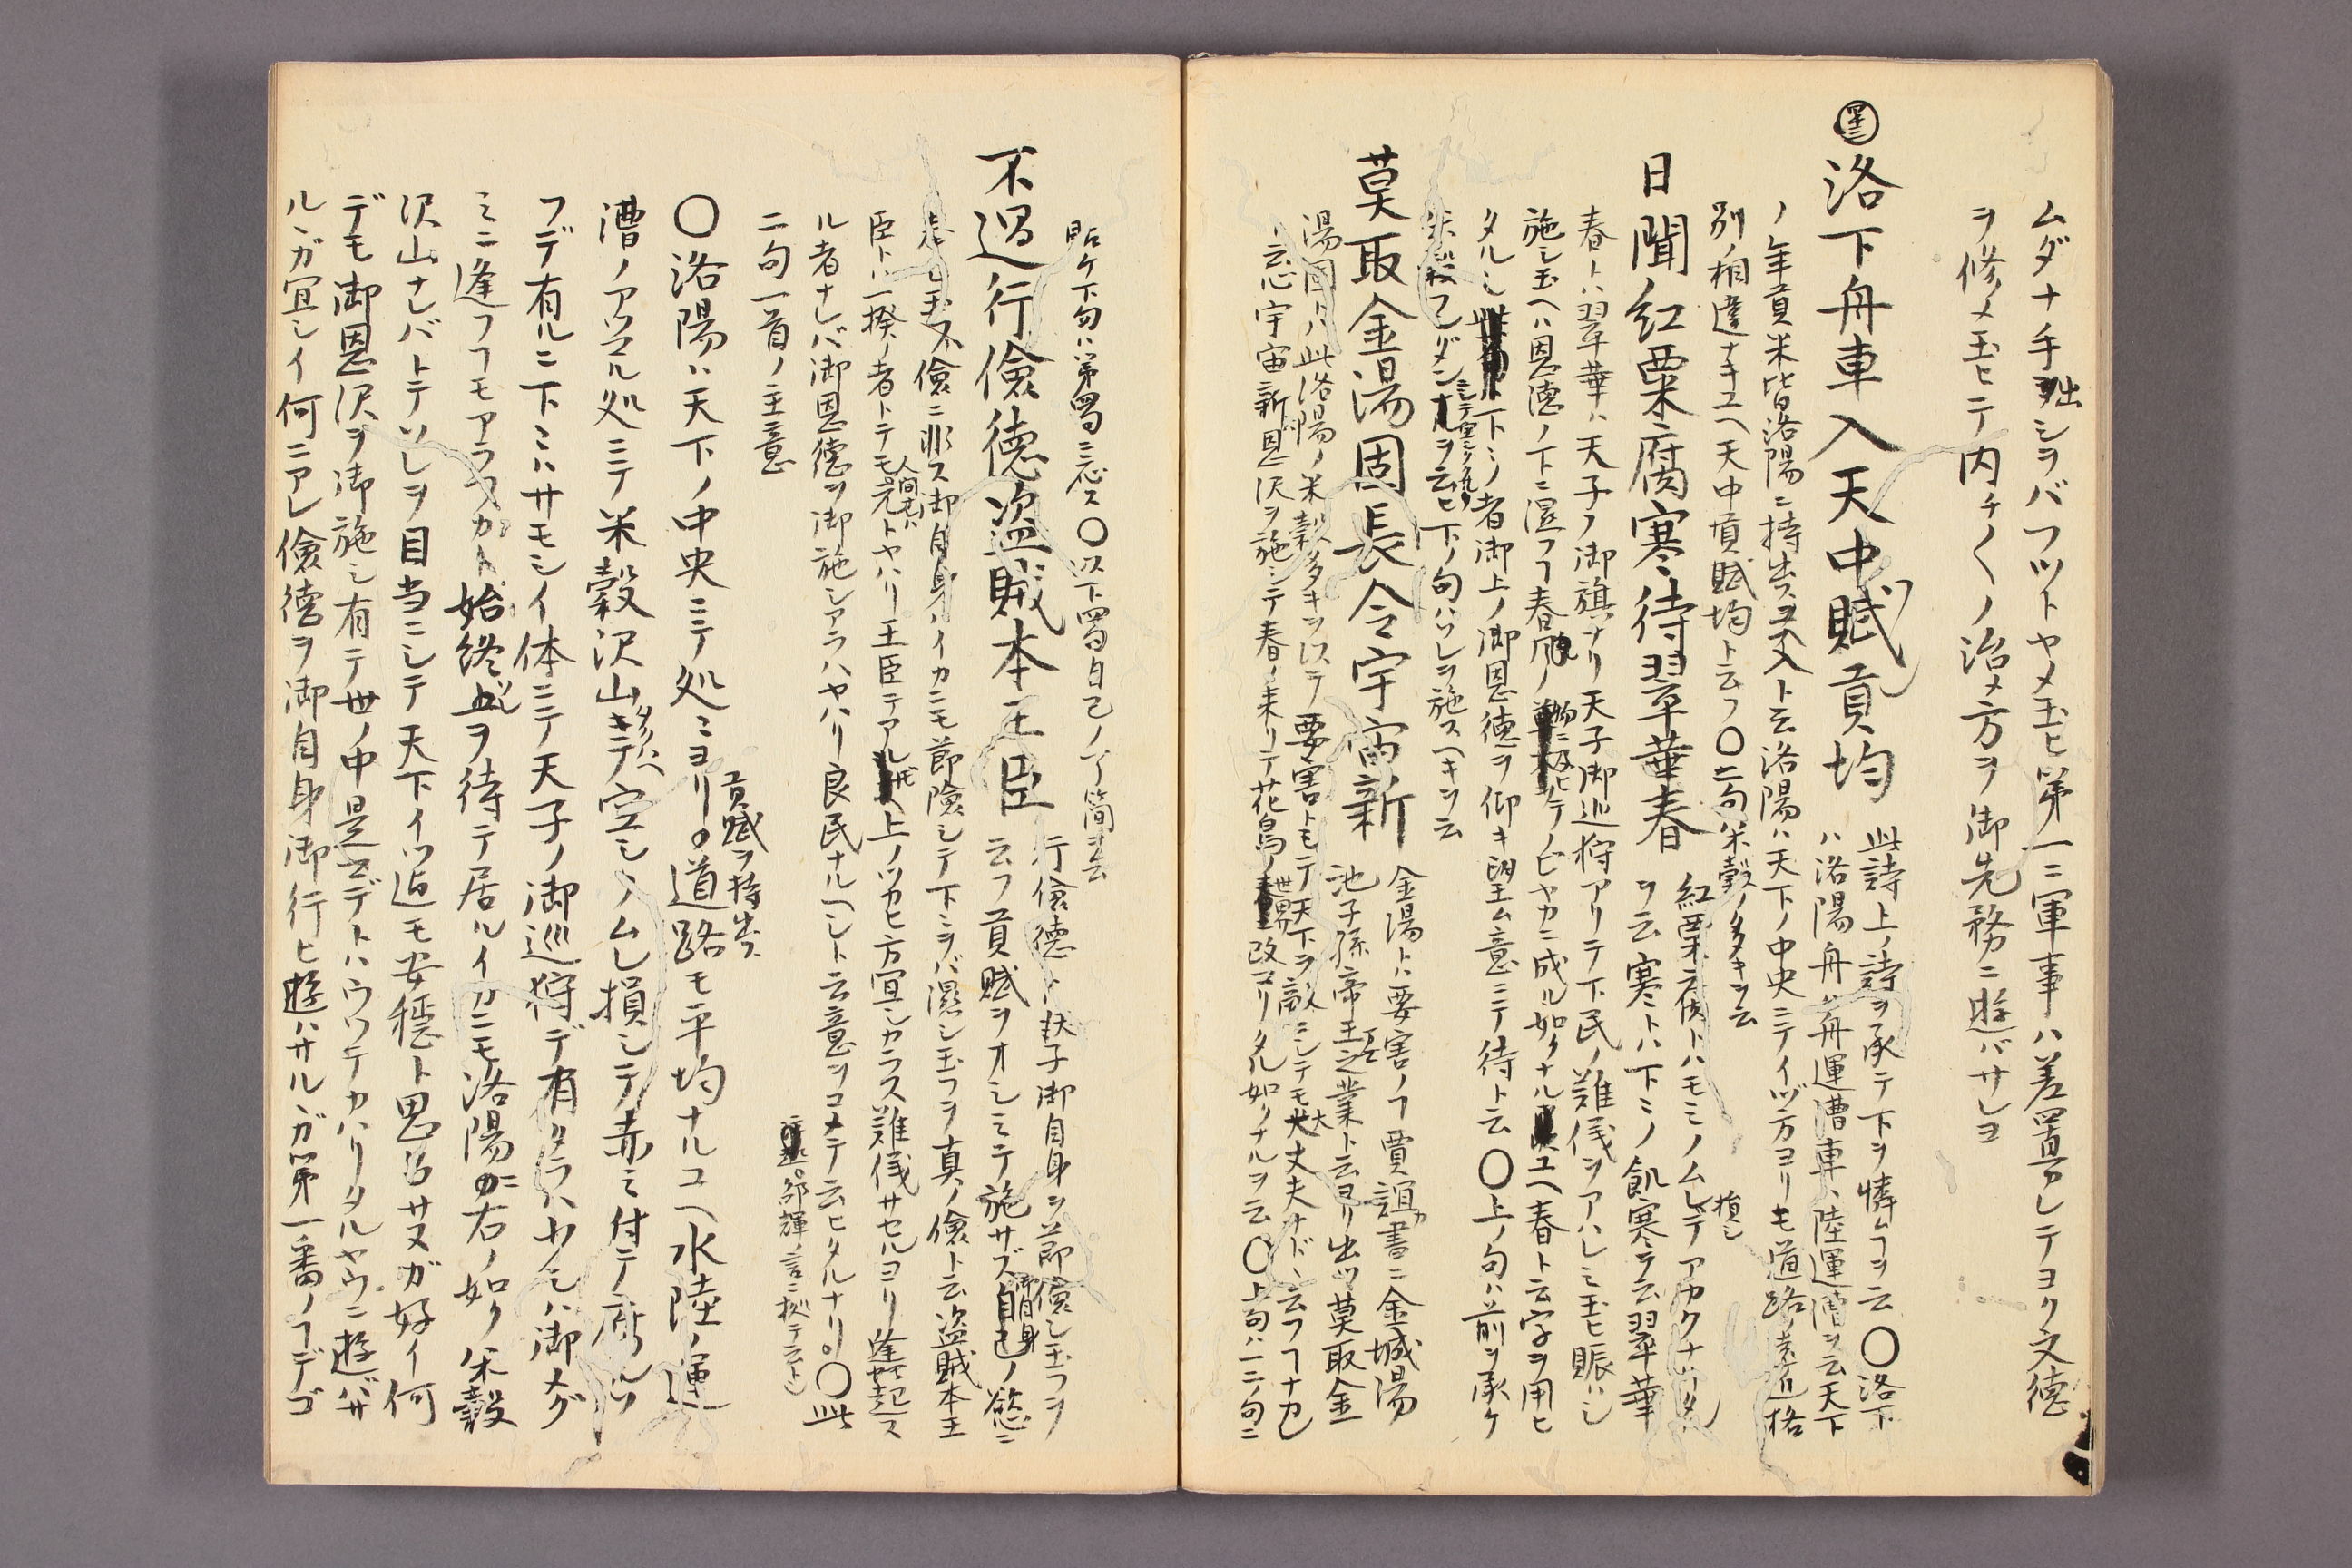 ムダナ手出シヲバフツトヤメ玉ヒ第一ニ軍事ハ差置カレテヨリ文德
ヲ修メ玉ヒテ内チ〱ノ治メ方ヲ御先務ニ遊バサレヨ
洛下舟車入天中賦貢均
此詩上ノ詩ヲ承テ下ヲ憐ムヿヲ云〇洛下
ハ洛陽舟ハ舟運漕車ハ陸運漕ヲ云天下
ノ年貢米皆洛陽ニ持出ス入ト云洛陽ハ天下ノ中央ニテイヅ方ヨリモ道路ノ遠近格
別ノ相違ナキユヘ天中貢賦均ト云フ〇二句米穀ノ多キヲ云
日聞紅粟腐寒待翠華春
紅粟腐トハモミノムレテアカクナリタル
ヲ云寒トハ下ミノ飢寒ヲ云翠華
春トハ翠華ハ天子ノ御旗ナリ天子御巡狩アリテ下民ノ難儀ヲアハレミ玉ヒ賑ハシ
施シ玉ヘハ恩德ノ下ニ湿フヿ春ノ物ニテノビヤカニ成ル如クナルユヘ春ト云字ヲ用ヒ
タルシ下ミノ者御上ノ御恩德ヲ仰キ望ム意ニテ待ト云〇上ノ句ハ前ヲ承ケ
米穀フンダンナヲ云ヒ下ノ句ハソレヲ施スヘキヲ云
莫取金湯固長令宇宙新
金湯トハ要害ノヿ賈誼書ニ金城湯
池子孫帝王之業ト云ヨリ出ツ莫取金
湯固トハ此洛陽ノ米穀多キヲ以テ要害トモテ天下ヲ敵ニシテモ大丈夫ナドヽ云フヿナカレ
ト云心宇宙新ハ恩沢ヲ施シテ春ノ来リテ花鳥ノ世界改マリタル如クナルヲ云〇上句ハ一二ノ句ニ
貼ケ下句ハ第四ニ応ス〇以下四句自己ノ了簡ヲ云
不過行儉德盜賊本王臣
行儉德トハ天子御自身ヲ節儉シ玉フヲ
云フ貢賦ヲオシミテ施サズ御自身ノ慾ニ
玉フ儉ニ非ス御自身ハイカニモ節險シテ下ミヲバ濕シ玉フヲ真ノ儉ト云盜賊本王
臣トハ一揆ノ者トテモ元トヤハリ王臣テアルガ上ノツカヒ方宜シカラス難儀サセルヨリ蜂起ス
ル者ナレバ御恩德ヲ御施シアラハヤハリ良民ナルヘシト云意ヲコメテ云ヒタルナリ〇此
二句一首ノ主意
〇洛陽ハ天下ノ中央ニテ処ミヨリ貢賦ヲ持出ス道路モ平均ナルユヘ水陸ノ運
漕ノアツマル処ミテ米穀沢山多キユヘ空シクムレ損シテ赤ミ付テ腐ルツ
フデ有ルニ下ミハサモシイ体ミテ天子ノ御巡狩デ有タラハ少シハ御メグ
ミニ逢フヿモアラフカト始終ヲ待テ居ルイカニモ洛陽ガ右ノ如ク米穀
沢山ナレバトテソレヲ目当ニシテ天下イツ迄モ安穩ト思召サヌガ好イ何
デモ御恩沢ヲ御施シ有テ世ノ中是マデトハウツテカハリタルヤウニ遊バサ
ルヽガ宜シイ何ニアレ儉德ヲ御自身御行ヒ遊ハサルヽガ第一番ノヿデゴ